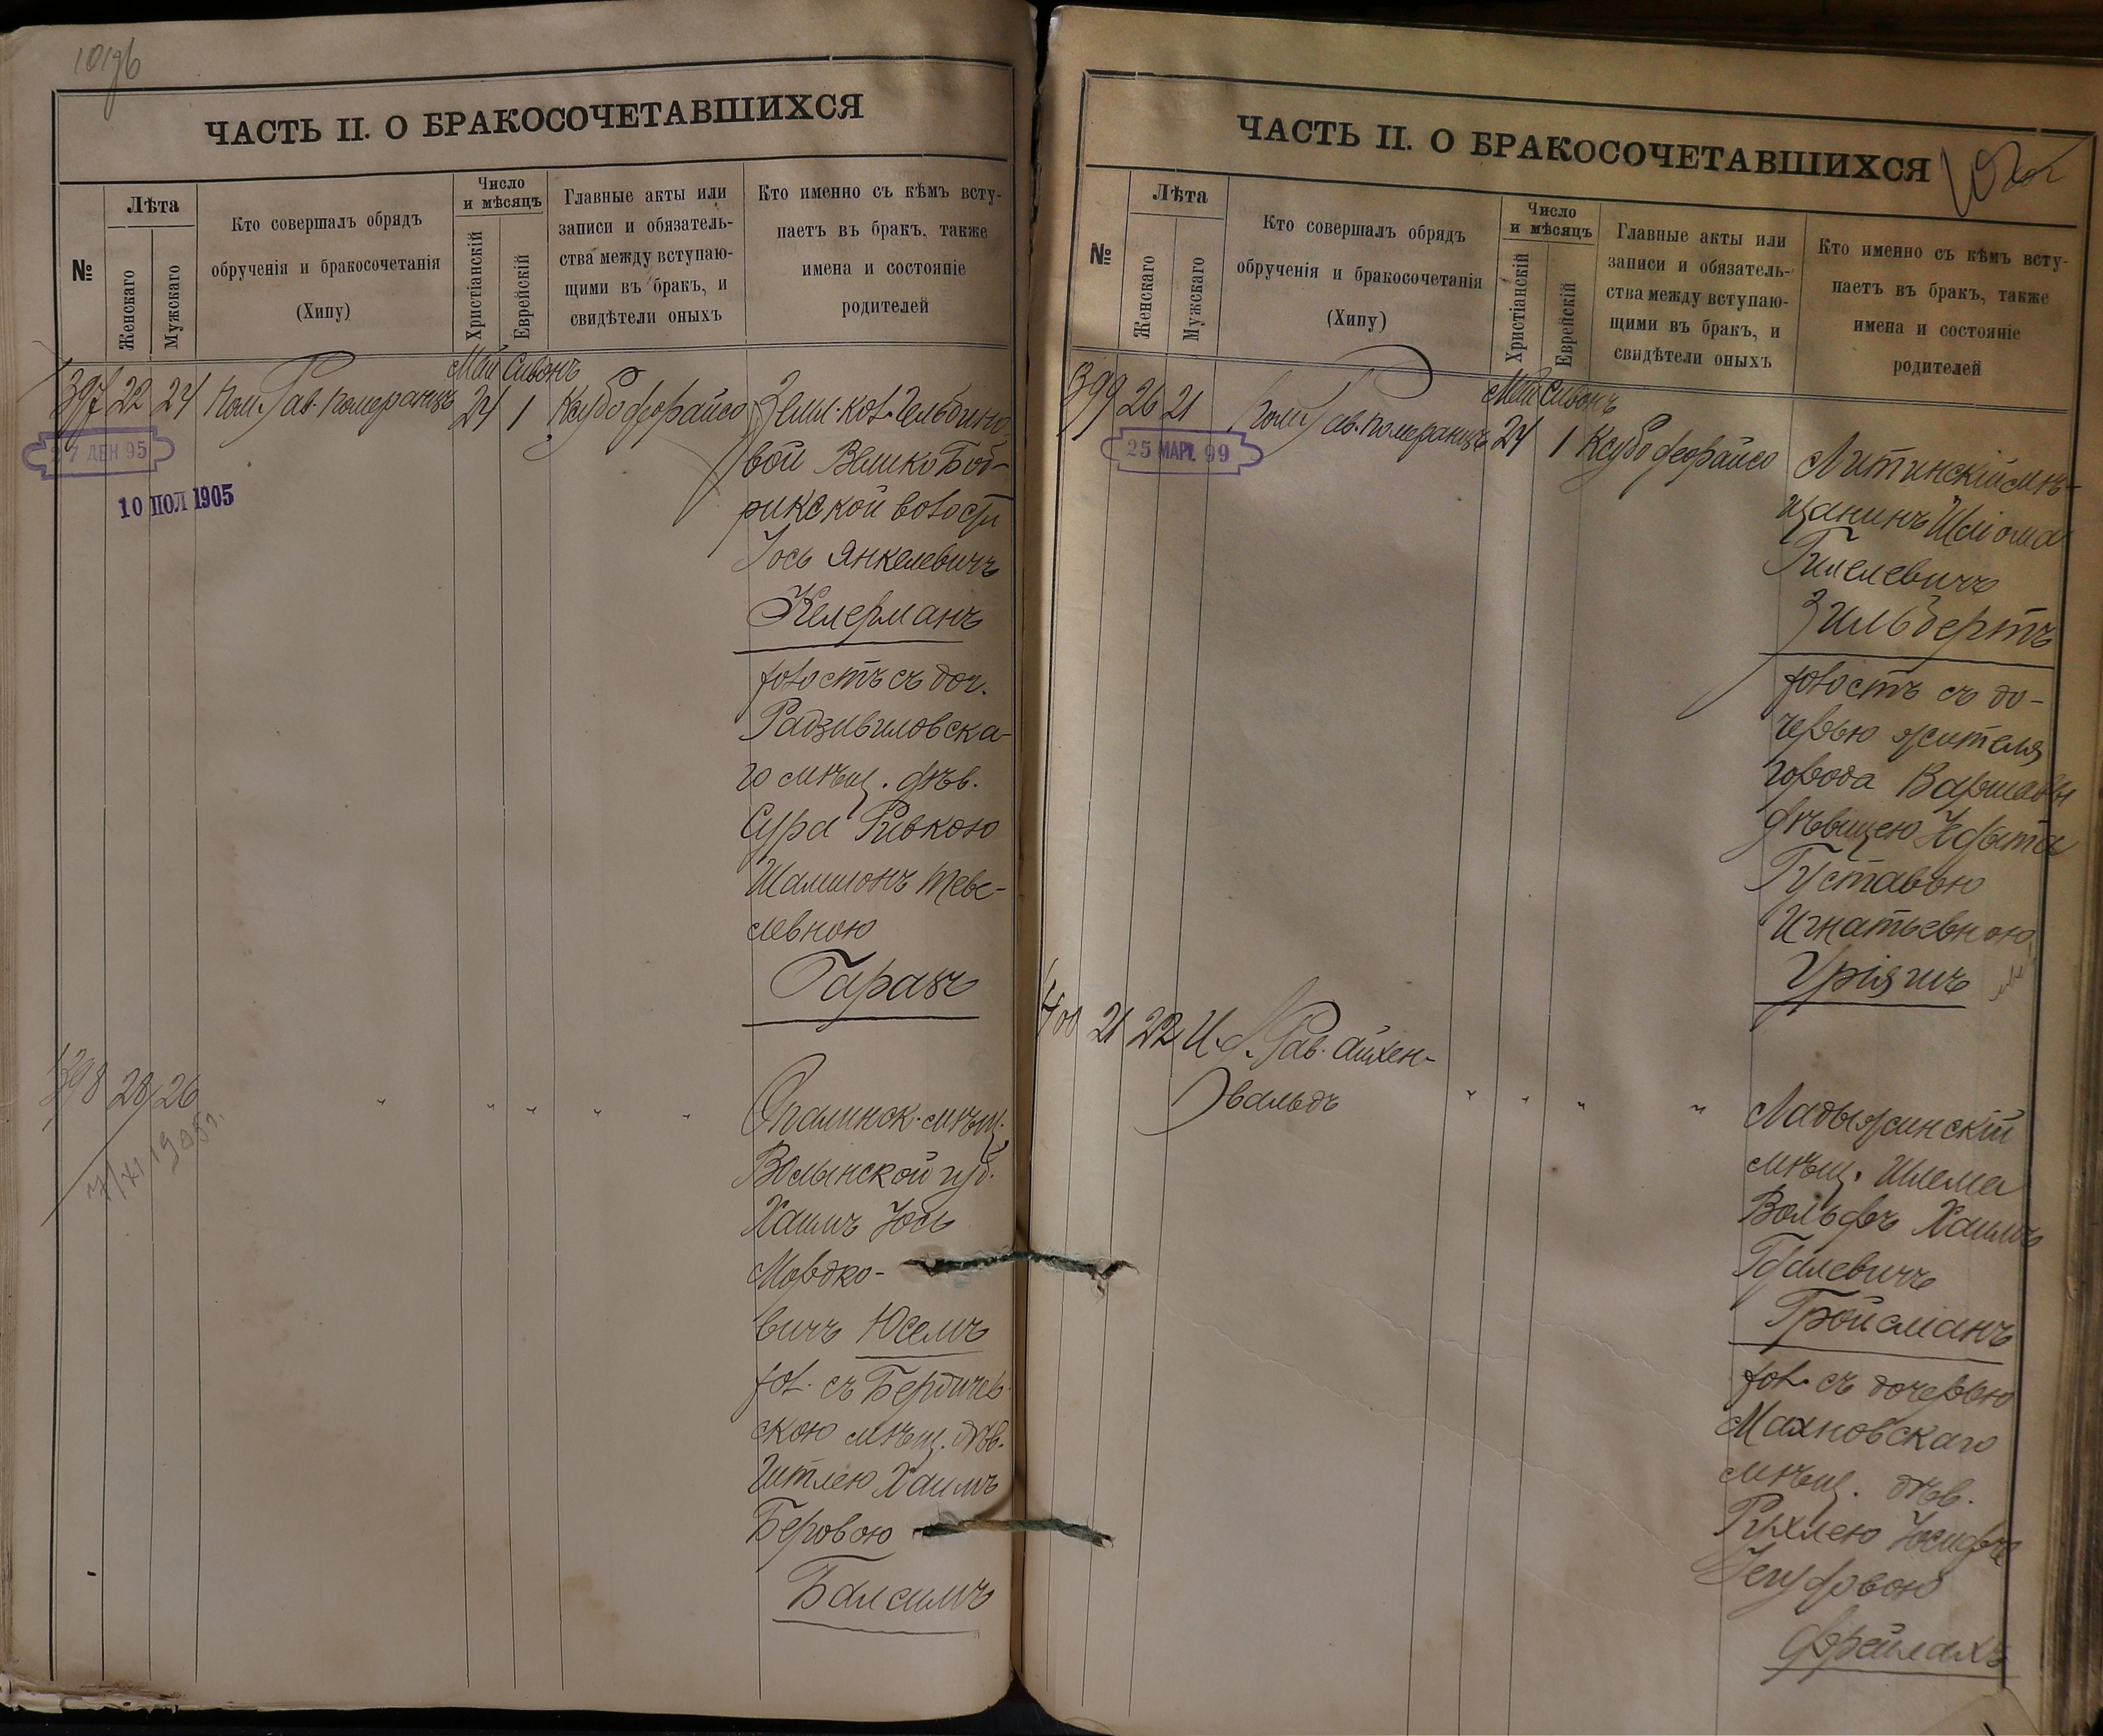 ЧАСТЬ II. О БРАКОСОЧЕТАВШИХСЯ
№
Лѣта
Женскаго
Мужскаго
Кто совершалъ обрядъ
обрученія и бракосочетанія
(Хипу)
Число
и мѣсяцъ
Христіанскій
Еврейскій
Главные акты или
записи и обязатель-
ства между вступаю-
щими въ бракъ, и
свидѣтели оныхъ
Кто именно съ кѣмъ всту-
паетъ въ бракъ, также
имена и состояніе
родителей
Май Сивонъ
397 22 24 Пом. Рав. Померанцъ 24 1
7 ДЕК 95
10 ПОЛ 1905
вой Велико
рикской волости
Іось Янкелевичъ
Келерманъ
холостъ съ доч.
Радзивиловска-
го мѣщ. дѣв.
Сура Ривкою
левною
Гаракъ
398 28 26 " " " " "
7/XI 1905 г.
мѣщ.
Волынской губ.
Хаимъ Іось
Мордко-
вичъ Юсемъ
хол. съ Бердичев-
скою мѣщ. дѣв.
Гитлею Хаимъ
Беровою
Балсимъ
ЧАСТЬ II. О БРАКОСОЧЕТАВШИХСЯ
№
Лѣта
Женскаго
Мужскаго
Кто совершалъ обрядъ
обрученія и бракосочетанія
(Хипу)
Число
и мѣсяцъ
Христіанскій
Еврейскій
Главные акты или
записи и обязатель-
ства между вступаю-
щими въ бракъ, и
свидѣтели оныхъ
Кто именно съ кѣмъ всту-
паетъ въ бракъ, также
имена и состояніе
родителей
Май Сивонъ
399 26 21 Пом. Рав. Померанцъ 24 1
25 МАРТ. 99
Литинскій мѣ-
щанинъ Шліома
Гилелевичъ
Зильбертъ
холостъ съ до-
черью жителя
города Варшавы
дѣвицею
Густавою
Игнатьевною
400 21 22 И. д. Рав. Айхен-
вальдъ " " " "
Ладыжинскій
мѣщ. Шлема
Вольфъ Хаимъ
Гдалевичъ
Гройсманъ
хол. съ дочерью
Махновскаго
мѣщ. дѣв.
Рухлею Іосифъ
Фрейлахъ